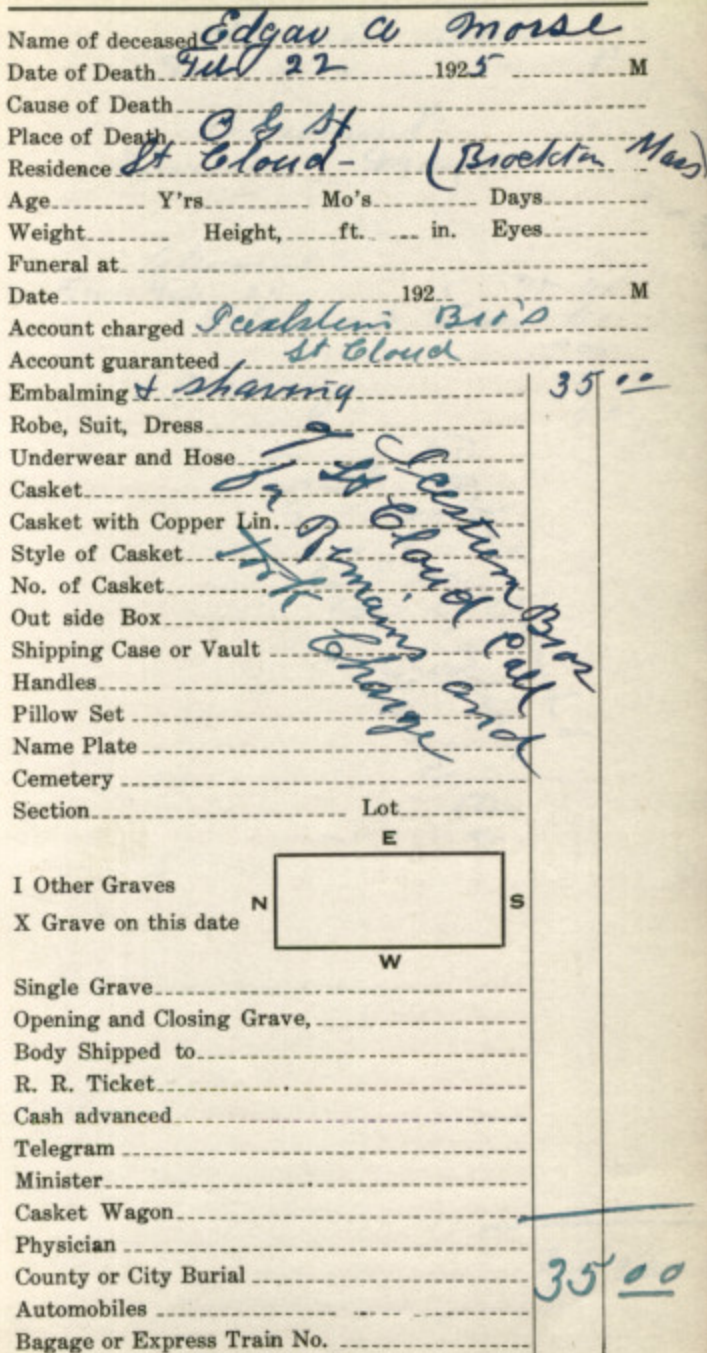 Name of deceased Edgar A Morse
Date of Death Feb 22 1925 M
Cause of Death
Place of Death O G St
Residence St Cloud - (Brockton Mass)
Age Y'rs Mo's Days
Weight Height, ft. in. Eyes
Funeral at
Date 192 M
Account charged Bro's
Account guaranteed St Cloud
Embalming & shaving 35 00
Robe, Suit, Dress
Underwear and Hose
Casket
Casket with Copper Lin.
Style of Casket
No. of Casket
Out side Box
Shipping Case or Vault
Handles
Pillow Set
Name Plate
Cemetery
Section Lot
Bros
of St Cloud Call
for Remains and
took Charge
E
I Other Graves
N S
X Grave on this date
W
Single Grave
Opening and Closing Grave,
Body Shipped to
R. R. Ticket
Cash advanced
Telegram
Minister
Casket Wagon
Physician
County or City Burial 35 00
Automobiles
Bagage or Express Train No.